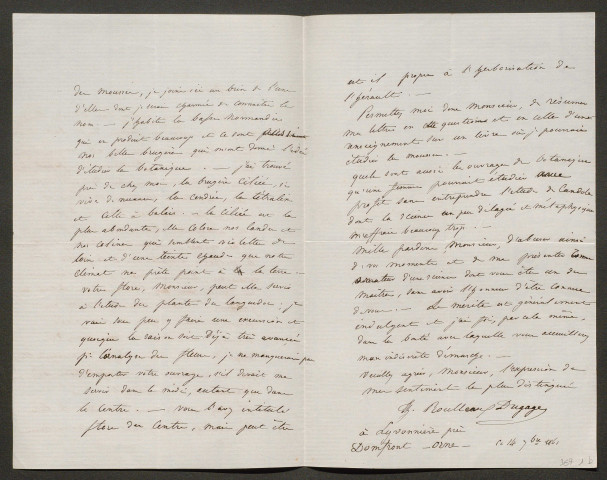 des mousses, je joins ici un brin de l'une
d'elles dont je serai charmée de connaître le
nom — j'habite la basse Normandie
qui en produit beaucoup et ce sont
nos belles bruyères qui m'ont donné l'idée
d'étudier la botanique. — j'ai trouvé
près de chez moi, la bruyère ciliée, si
vive de nuances, la cendrée, la tétralix
et celle à balais. — la ciliée est la
plus abondante, elle colore nos landes et
nos collines qui semblent violettes de
loin et d'une teinte chaude que notre
climat ne prête point à la terre —
votre flore, Monsieur, peut elle servir
à l'étude des plantes du languedoc. je
vais sous peu y faire une excursion et
quoique la saison soit déjà très avancée
pr l'analyse des fleurs, je ne manquerai pas
d'emporter votre ouvrage, s'il devait me
servir dans le midi, autant que dans
le centre. — vous l'avez intitulé
flore du Centre, mais peut être
est il propre à l'herborisation de
l'hérault. —
Permettez moi donc Monsieur, de résumer
ma lettre en questions et en celle d'un
renseignement sur un livre où je pourrais
étudier les mousses. —
quels sont aussi les ouvrages de botanique
qu'une femme pourrait étudier avec
profit sans entreprendre l'étude de Candolle
dont la science un peu délayée et métaphysique
m'effraie beaucoup trop. —
Mille pardons Monsieur, d'abuser ainsi
de vos moments et de me présenter comme
amateur d'une science dont vous êtes un des
maîtres, sans avoir l'honneur d'être connue
de vous. — le mérite est généralement
indulgent et j'ai foi, par cela même,
dans la bonté avec laquelle vous accueillerez
mon indiscrète démarche. —
Veuillez agréer, Monsieur, l'expression de
mes sentiments les plus distingués
Roulleaux Dugage
à Lyvonnière près
Domfront — Orne — Ce 14 7bre 1861